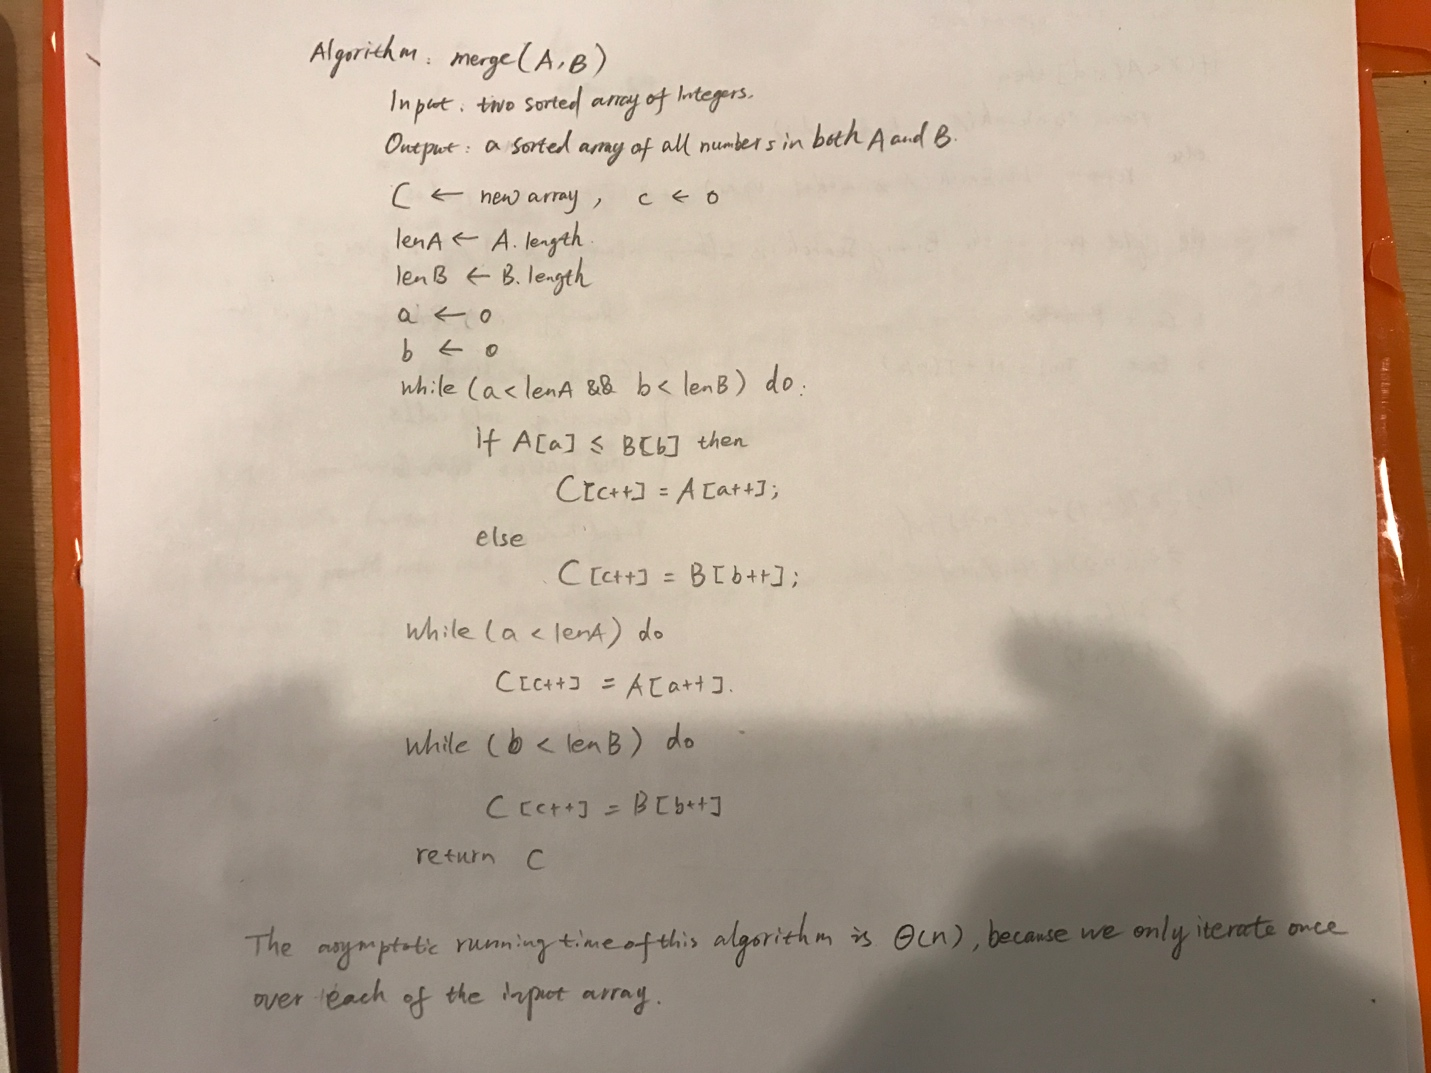 Algorithm: merge(A,B)
Input: two sorted array of Integers.
Output: a sorted array of all numbers in both A and B.
C ← new array, c ← 0
lenA ← A.length.
lenB ← B.length
a ← 0
b ← 0
while (a < lenA && b < lenB) do:
If A[a] ≤ B[b] then
C[c++] = A[a++];
else
C[c++] = B[b++];
while (a < lenA) do
C[c++] = A[a++].
while (b < lenB) do
C[c++] = B[b++]
return C
The asymptotic running time of this algorithm is Θ(n), because we only iterate once
over each of the input array.